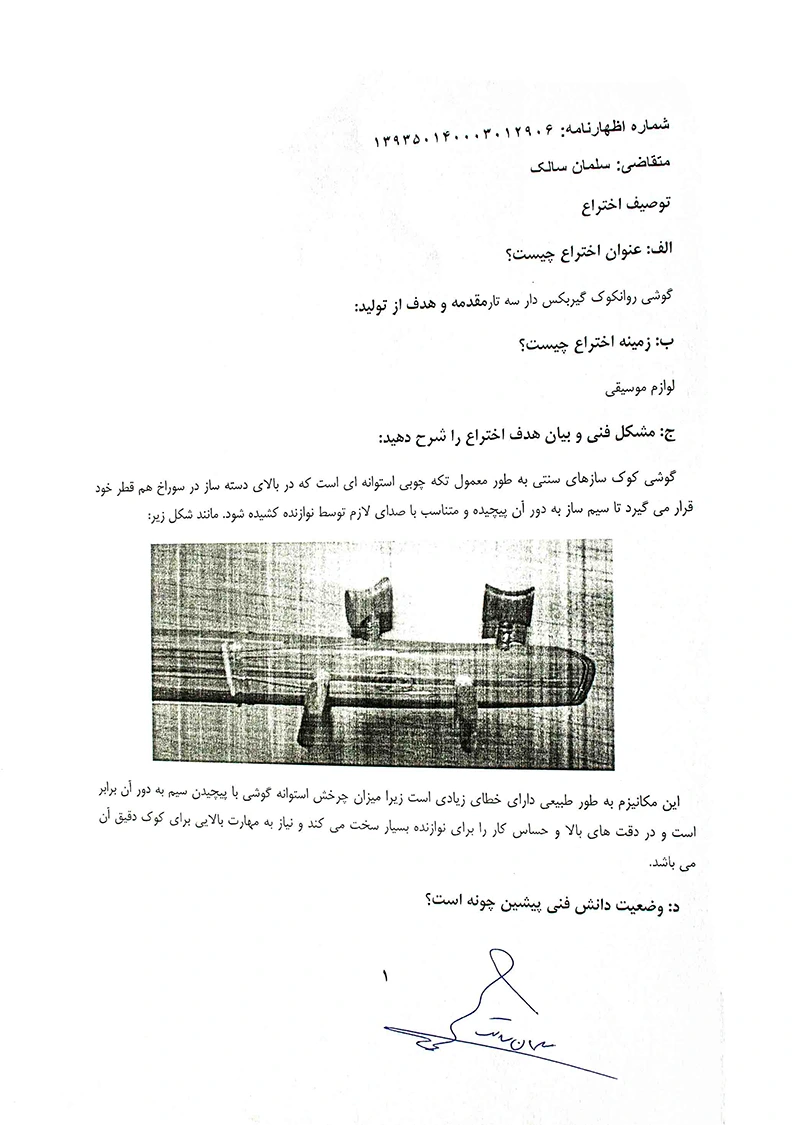 شماره اظهارنامه: ۱۳۹۳۵۰۱۴۰۰۰۳۰۱۲۹۰۶
متقاضی: سلمان سالک
توصیف اختراع
الف: عنوان اختراع چیست؟
گوشی روانکوک گیربکس دار سه تارمقدمه و هدف از تولید:
ب: زمینه اختراع چیست؟
لوازم موسیقی
ج: مشکل فنی و بیان هدف اختراع را شرح دهید:
گوشی کوک سازهای سنتی به طور معمول تکه چوبی استوانه ای است که در بالای دسته ساز در سوراخ هم قطر خود
قرار می گیرد تا سیم ساز به دور آن پیچیده و متناسب با صدای لازم توسط نوازنده کشیده شود. مانند شکل زیر:
این مکانیزم به طور طبیعی دارای خطای زیادی است زیرا میزان چرخش استوانه گوشی با پیچیدن سیم به دور آن برابر
است و در دقت های بالا و حساس کار را برای نوازنده بسیار سخت می کند و نیاز به مهارت بالایی برای کوک دقیق آن
می باشد.
د: وضعیت دانش فنی پیشین چونه است؟
۱
سلمان سالک